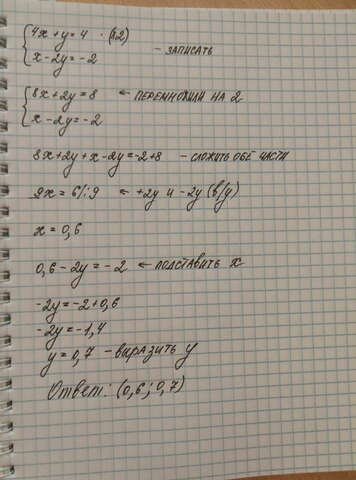 {4x+y=4 ·(x2)
{x-2y=-2 - ЗАПИСАТЬ
{8x+2y=8 ← ПЕРЕМНОЖИЛИ НА 2
{x-2y=-2
8x+2y+x-2y=-2+8 - СЛОЖИТЬ ОБЕ ЧАСТИ
9x=6/:9 ← +2y и -2y (в/у)
x=0,6
0,6-2y=-2 ← ПОДСТАВИТЬ x
-2y=-2+0,6
-2y=-1,4
y=0,7 - выразить y
Ответ: (0,6;0,7)